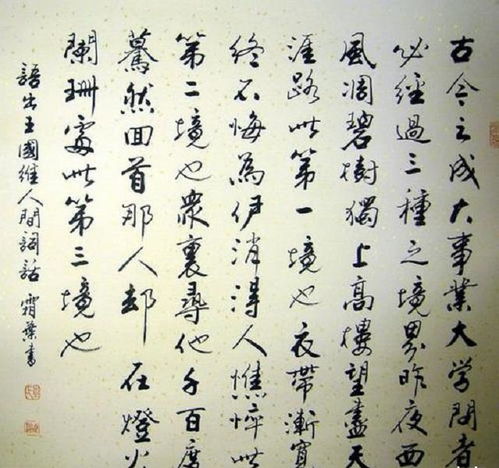 古今之成大事業大学問者
必經過三種之境界昨夜西
風凋碧樹獨上高樓望盡天
涯路此第一境也衣帶漸寬
終不悔為伊消得人憔悴此
第二境也衆裏尋他千百度
驀然回首那人却在燈火
闌珊處此第三境也
語出王國維人間詞話 霜葉書